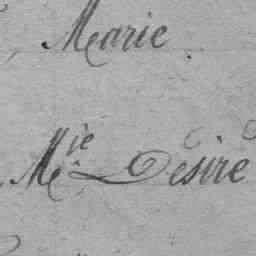 , Marie
Mie Désiré